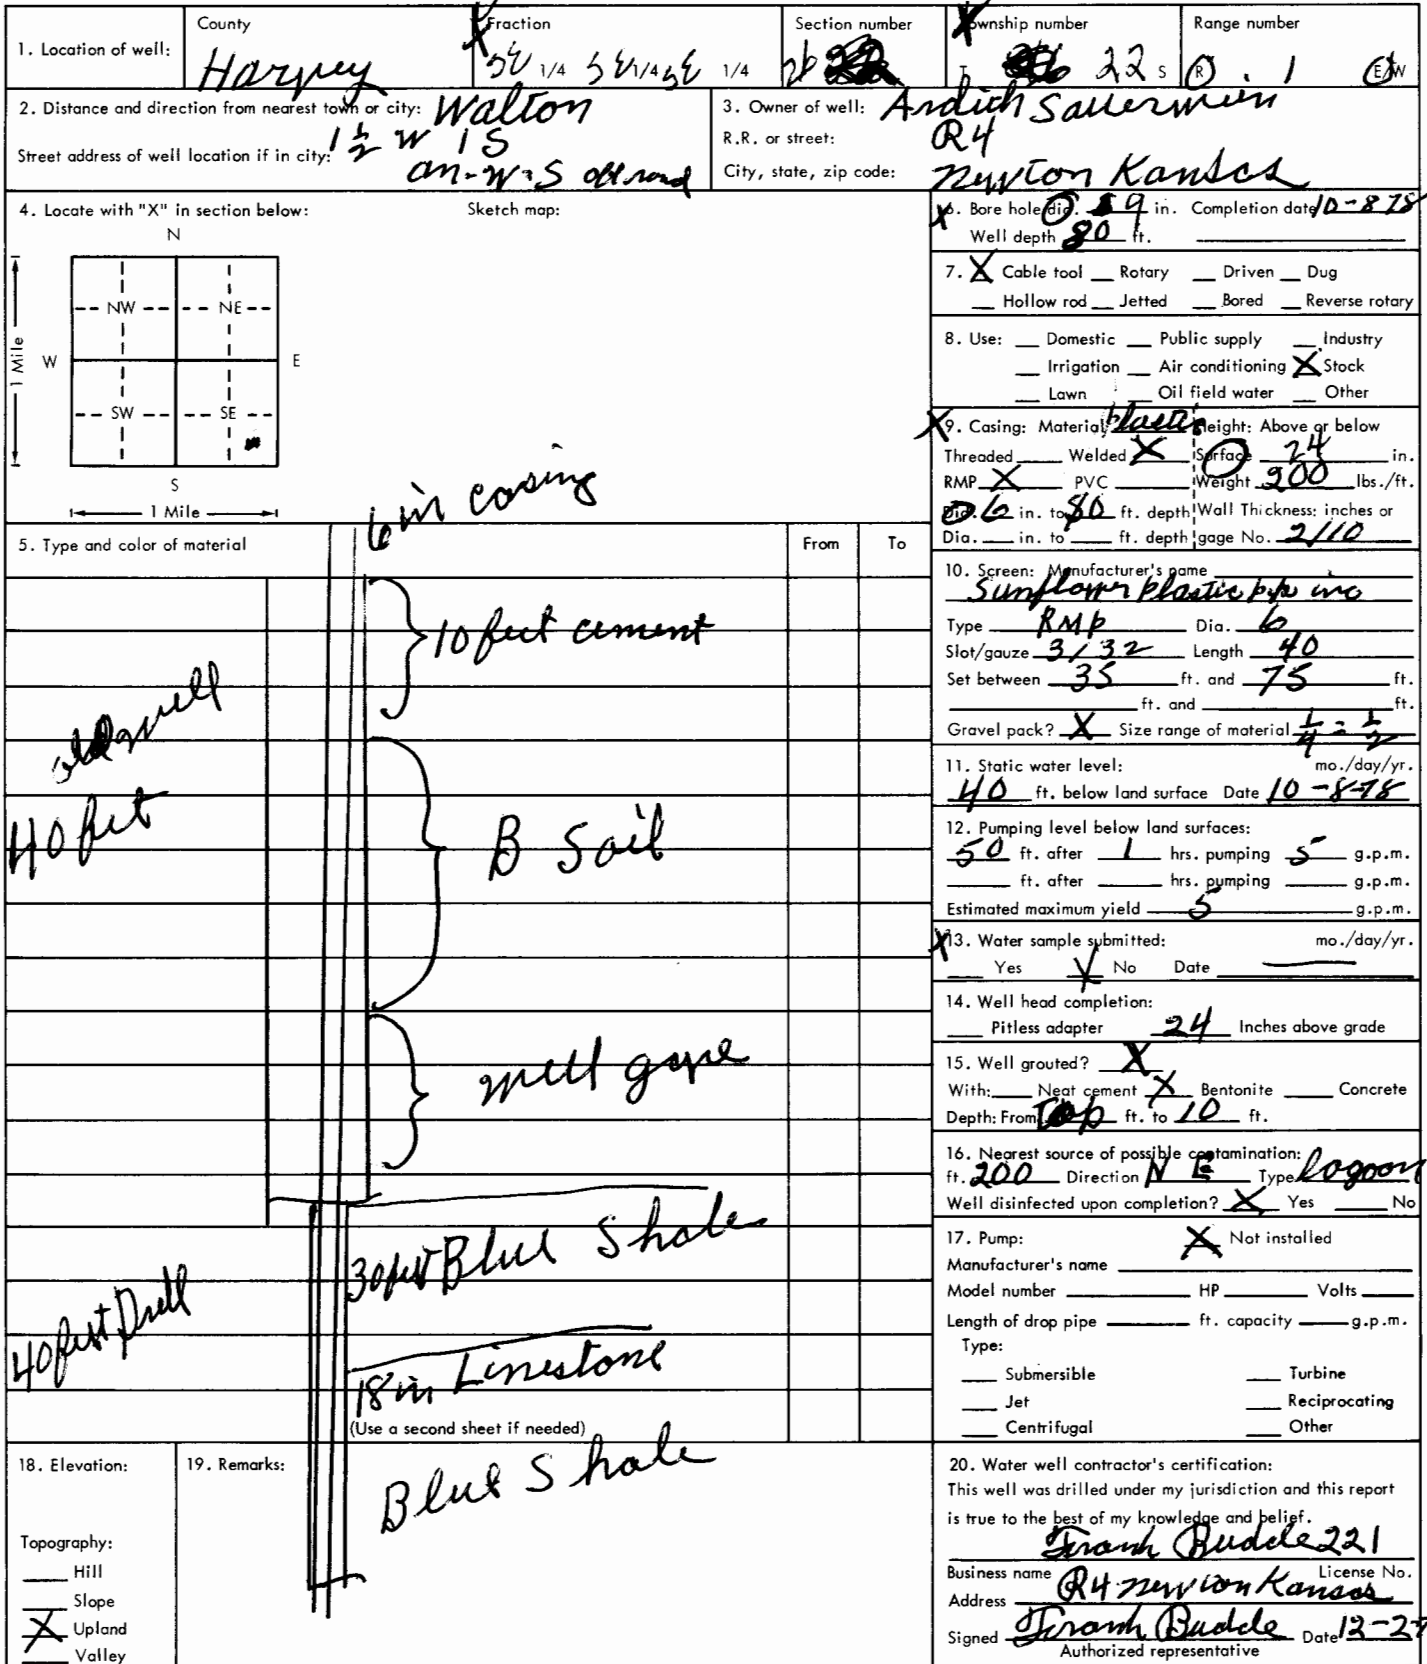 1. Location of well:
County
Harvey
Fraction
SE 1/4 SE 1/4 SE 1/4
Section number
26
Township number
T 22 S
Range number
R 1 E/W
2. Distance and direction from nearest town or city: Walton
1 1/2 W 1 S
Street address of well location if in city:
on - W - S of road
3. Owner of well:
R.R. or street: R4
City, state, zip code: Newton Kansas
4. Locate with "X" in section below:
Sketch map:
N
NW NE
W E
1 Mile
SW SE
S
1 Mile
6 in casing
5. Type and color of material
From To
10 feet cement
old well
40 feet
B Soil
well
30 feet Blue Shale
40 feet Drill
18 in Limestone
(Use a second sheet if needed)
Blue Shale
18. Elevation:
Topography:
Hill
Slope
X Upland
Valley
19. Remarks:
X 6. Bore hole dia. 9 in. Completion date 10-8 78
Well depth 80 ft.
7. X Cable tool Rotary Driven Dug
Hollow rod Jetted Bored Reverse rotary
8. Use: Domestic Public supply Industry
Irrigation Air conditioning X Stock
Lawn Oil field water Other
X 9. Casing: Material plastic Height: Above or below
Threaded Welded X Surface 24 in.
RMP X PVC Weight 200 lbs./ft.
Dia. 6 in. to 80 ft. depth Wall Thickness: inches or
Dia. in. to ft. depth gage No. 2/10
10. Screen: Manufacturer's name
Sunflower plastic pipe inc
Type RMP Dia. 6
Slot/gauze 3/32 Length 40
Set between 35 ft. and 75 ft.
ft. and ft.
Gravel pack? X Size range of material 1/4 = 1/2
11. Static water level: mo./day/yr.
40 ft. below land surface Date 10-8-78
12. Pumping level below land surfaces:
50 ft. after 1 hrs. pumping 5 g.p.m.
ft. after hrs. pumping g.p.m.
Estimated maximum yield 5 g.p.m.
X 13. Water sample submitted: mo./day/yr.
Yes X No Date
14. Well head completion:
Pitless adapter 24 Inches above grade
15. Well grouted? X
With: Neat cement X Bentonite Concrete
Depth: From Top ft. to 10 ft.
16. Nearest source of possible contamination:
ft. 200 Direction N E Type lagoon
Well disinfected upon completion? X Yes No
17. Pump: X Not installed
Manufacturer's name
Model number HP Volts
Length of drop pipe ft. capacity g.p.m.
Type:
Submersible Turbine
Jet Reciprocating
Centrifugal Other
20. Water well contractor's certification:
This well was drilled under my jurisdiction and this report
is true to the best of my knowledge and belief.
Frank Budde 221
Business name License No.
Address R4 Newton Kansas
Signed Frank Budde Date 12-2
Authorized representative